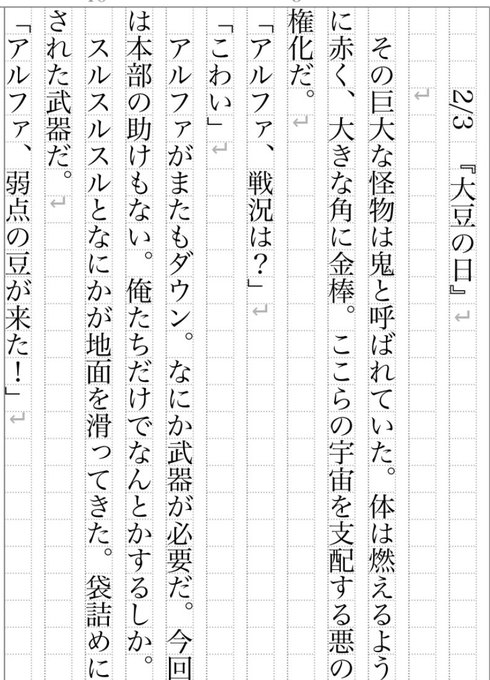 2/3 『大豆の日』
その巨大な怪物は鬼と呼ばれていた。体は燃えるよう
に赤く、大きな角に金棒。ここらの宇宙を支配する悪の
権化だ。
「アルファ、戦況は？」
「こわい」
アルファがまたもダウン。なにか武器が必要だ。今回
は本部の助けもない。俺たちだけでなんとかするしか。
スルスルスルとなにかが地面を滑ってきた。袋詰めに
された武器だ。
「アルファ、弱点の豆が来た！」